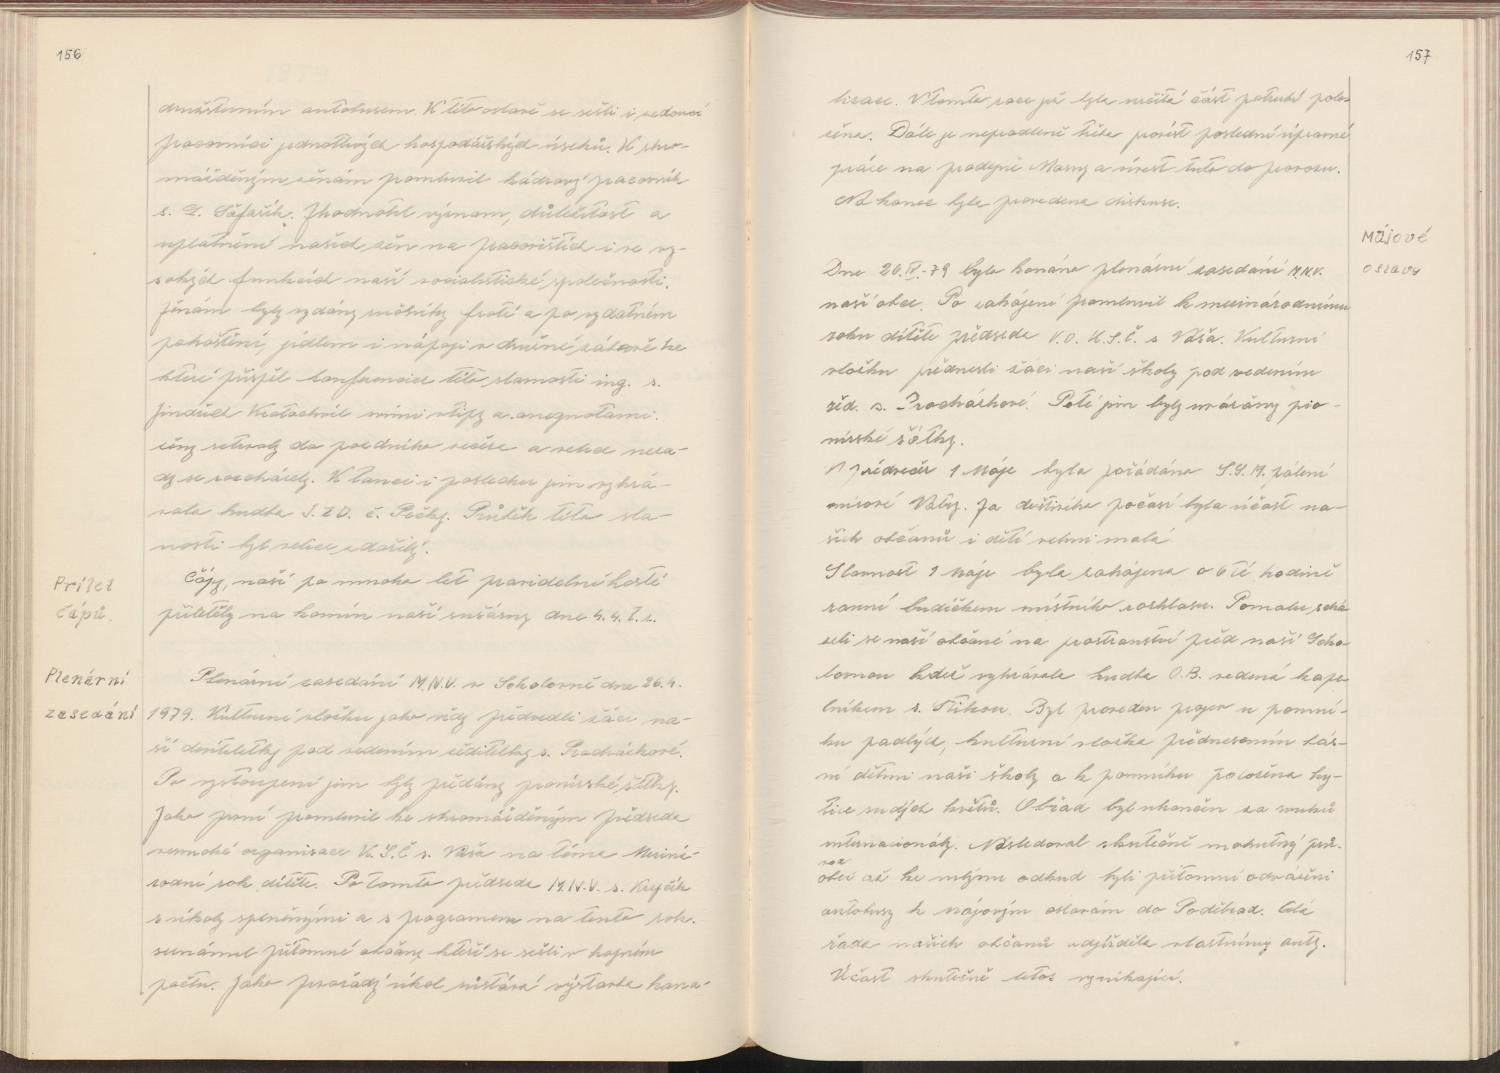 156
družstevním autobusem. K této oslavě se sešli i vedoucí
pracovníci jednotlivých hospodářských úseků. K shro-
mážděným ženám promluvil kádrový pracovník
s. Šafařík. Zhodnotil význam, důležitost a
uplatnění našich žen na pracovištích i ve vy-
sokých funkcích naší socialistické společnosti.
Ženám byly vydány ručníky froté a po vydatném
pohoštění, jídlem i nápoji v družné zábavě ke
které přispěl konferencier této slavnosti ing. s.
Jindřich Kratochvíl svými vtipy a anegnotami.
ženy setrvaly do pozdního večera a velice nera-
dy se rozcházely. K tanci i poslechu jim vyhrá-
vala hudba J.Z.D. č. Pečky. Průběh této sla-
nosti byl velice zdařilý.
Přílet
čápů.
Čápi, naši po mnoho let pravidelní hosté
přiletěly na komín naší sušárny dne 4.4. t.r.
Plenární
zasedání
Plenární zasedání M.N.V. v Sokolovně dne 26.4.
1979. Kulturní vložku jako vždy předvedli žáci na-
ší devítiletky pod vedením ředitelky s. Procházkové.
Po vystoupení jim byly předány pionýrské šátky.
Jako první promluvil ke shromážděným předseda
vesnické organisace K.S.Č s. Váša na téma Meziná-
rodní rok dítěte. Po tomto předseda M.N.V. s. Krejčík
s úkoly splněnými a s programem na tento rok.
seznámil přítomné občany, kteří se sešli v hojném
počtu. Jako prvořadý úkol zůstává výstavba kana-
157
lizace. V tomto roce již byla určitá část potrubí polo-
žena. Dále je neprodleně třeba provést poslední úpravné
práce na prodejně Masny a uvést tuto do provozu.
Na konec byla provedena diskuse.
Májové
oslavy
Dne 26.IV.-79 bylo konáno plenární zasedání M.N.V.
naší obce. Po zahájení promluvil k mezinárodnímu
roku dítěte předseda V.O. K.S.Č. s Váša. Kulturní
vložku přednesli žáci naší školy pod vedením
řed. s. Procházkové. Poté jim byly uvázány pio-
nírské šátky.
V předvečer 1 Máje bylo pořádáno S.S.M. pálení
mírové Vatry. Za deštivého počasí byla účast na-
šich občanů i dětí velmi malá.
Slavnost 1 Máje byla zahájena o 6 té hodině
ranní budíčkem místního rozhlasu. Pomalu schá-
zeli se naší občané na prostranství před naší Soko-
lovnou kdež vyhrávala hudba O.B. vedená kape-
lníkem s. Flikou. Byl proveden projev u pomní-
ku padlých, kulturní vložka přednesením bás-
ní dětmi naší školy a k pomníku položena ky-
tice rudých květů. Obřad byl ukončen za zvuků
internacionály. Následoval skutečně mohutný prů-
vod
obcí až ke mlýnu odkud byli přítomní odváženi
autobusy k májovým oslavám do Poděbrad. Celá
řada našich občanů odjížděla vlastnímy auty.
Účast skutečně letos vynikající.